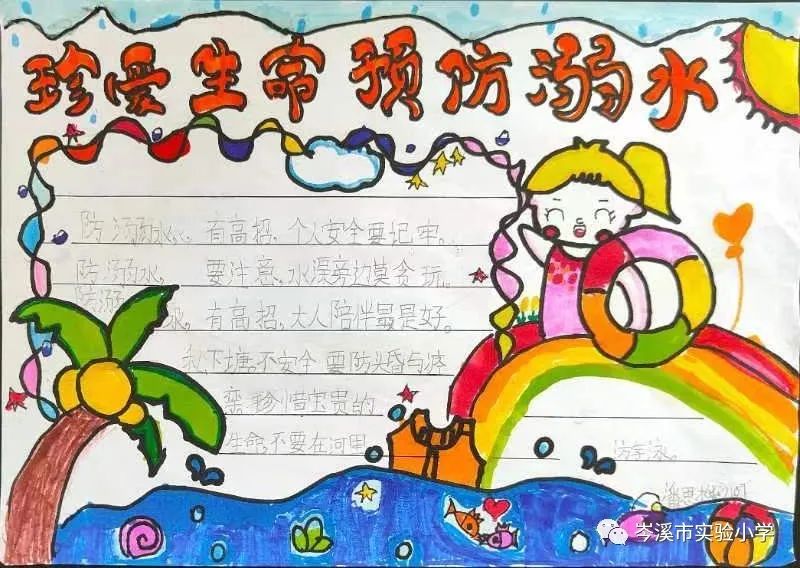 珍爱生命 预防溺水
防溺水，有高招，个人安全要记牢。
防溺水，要注意，水深旁边莫贪玩。
防溺水，有高招，大人陪伴最是好。
水下塘，不安全 要防头昏与
珍惜宝贵的
生命，不要在河里
游泳。
岑溪市实验小学